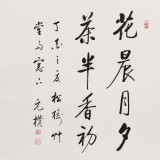 花晨月夕
茶半香初
丁亥之夏松艸
堂南窗下元樸